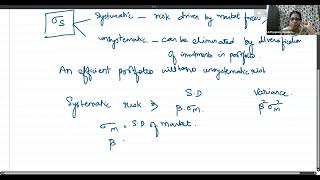 σs
Systematic — risk driven by market forces
unsystematic — can be eliminated by diversification
of investments in portfolio.
An efficient portfolio will have no unsystematic risk
S.D Variance
Systematic risk ⇒ β.σM β²σM²
σM = S.D of market.
β